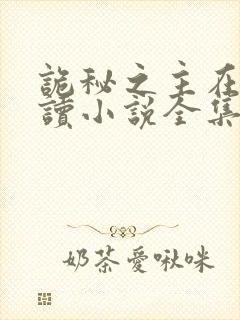 詭秘之主在
讀小說全集
奶茶愛啾咪